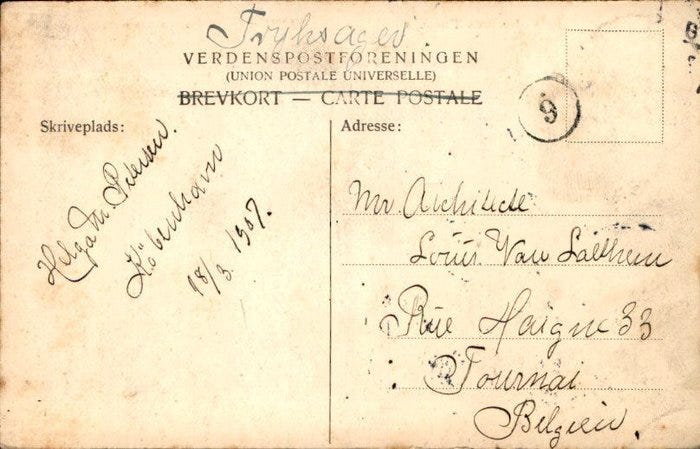 Tryksager.
VERDENSPOSTFORENINGEN
(UNION POSTALE UNIVERSELLE)
BREVKORT — CARTE POSTALE
9
Skriveplads:
Helga M. Petersen.
København
18/3. 1907.
Adresse:
Mr Architecte
Louis Van
Rue Haigne 33
Tournai
Belgien.